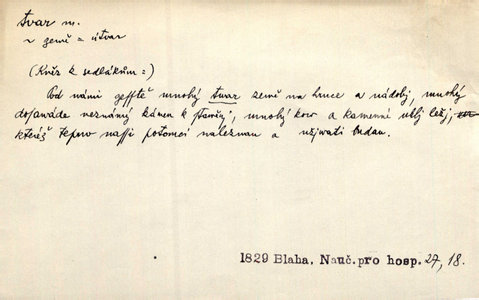 tvar m.
~ země = útvar
(Kněz k sedlákům:)
Pod námi gesstě mnohý tvar země na hrnce a nádobj, mnohý
dosawáde neznámý kámen k stawěnj, mnohý kow a kamenné uhlj ležj,
kteréž teprw nassi potomci naleznau a užjwati budau.
1829 Blaha, Nauč. pro hosp. 27, 18.